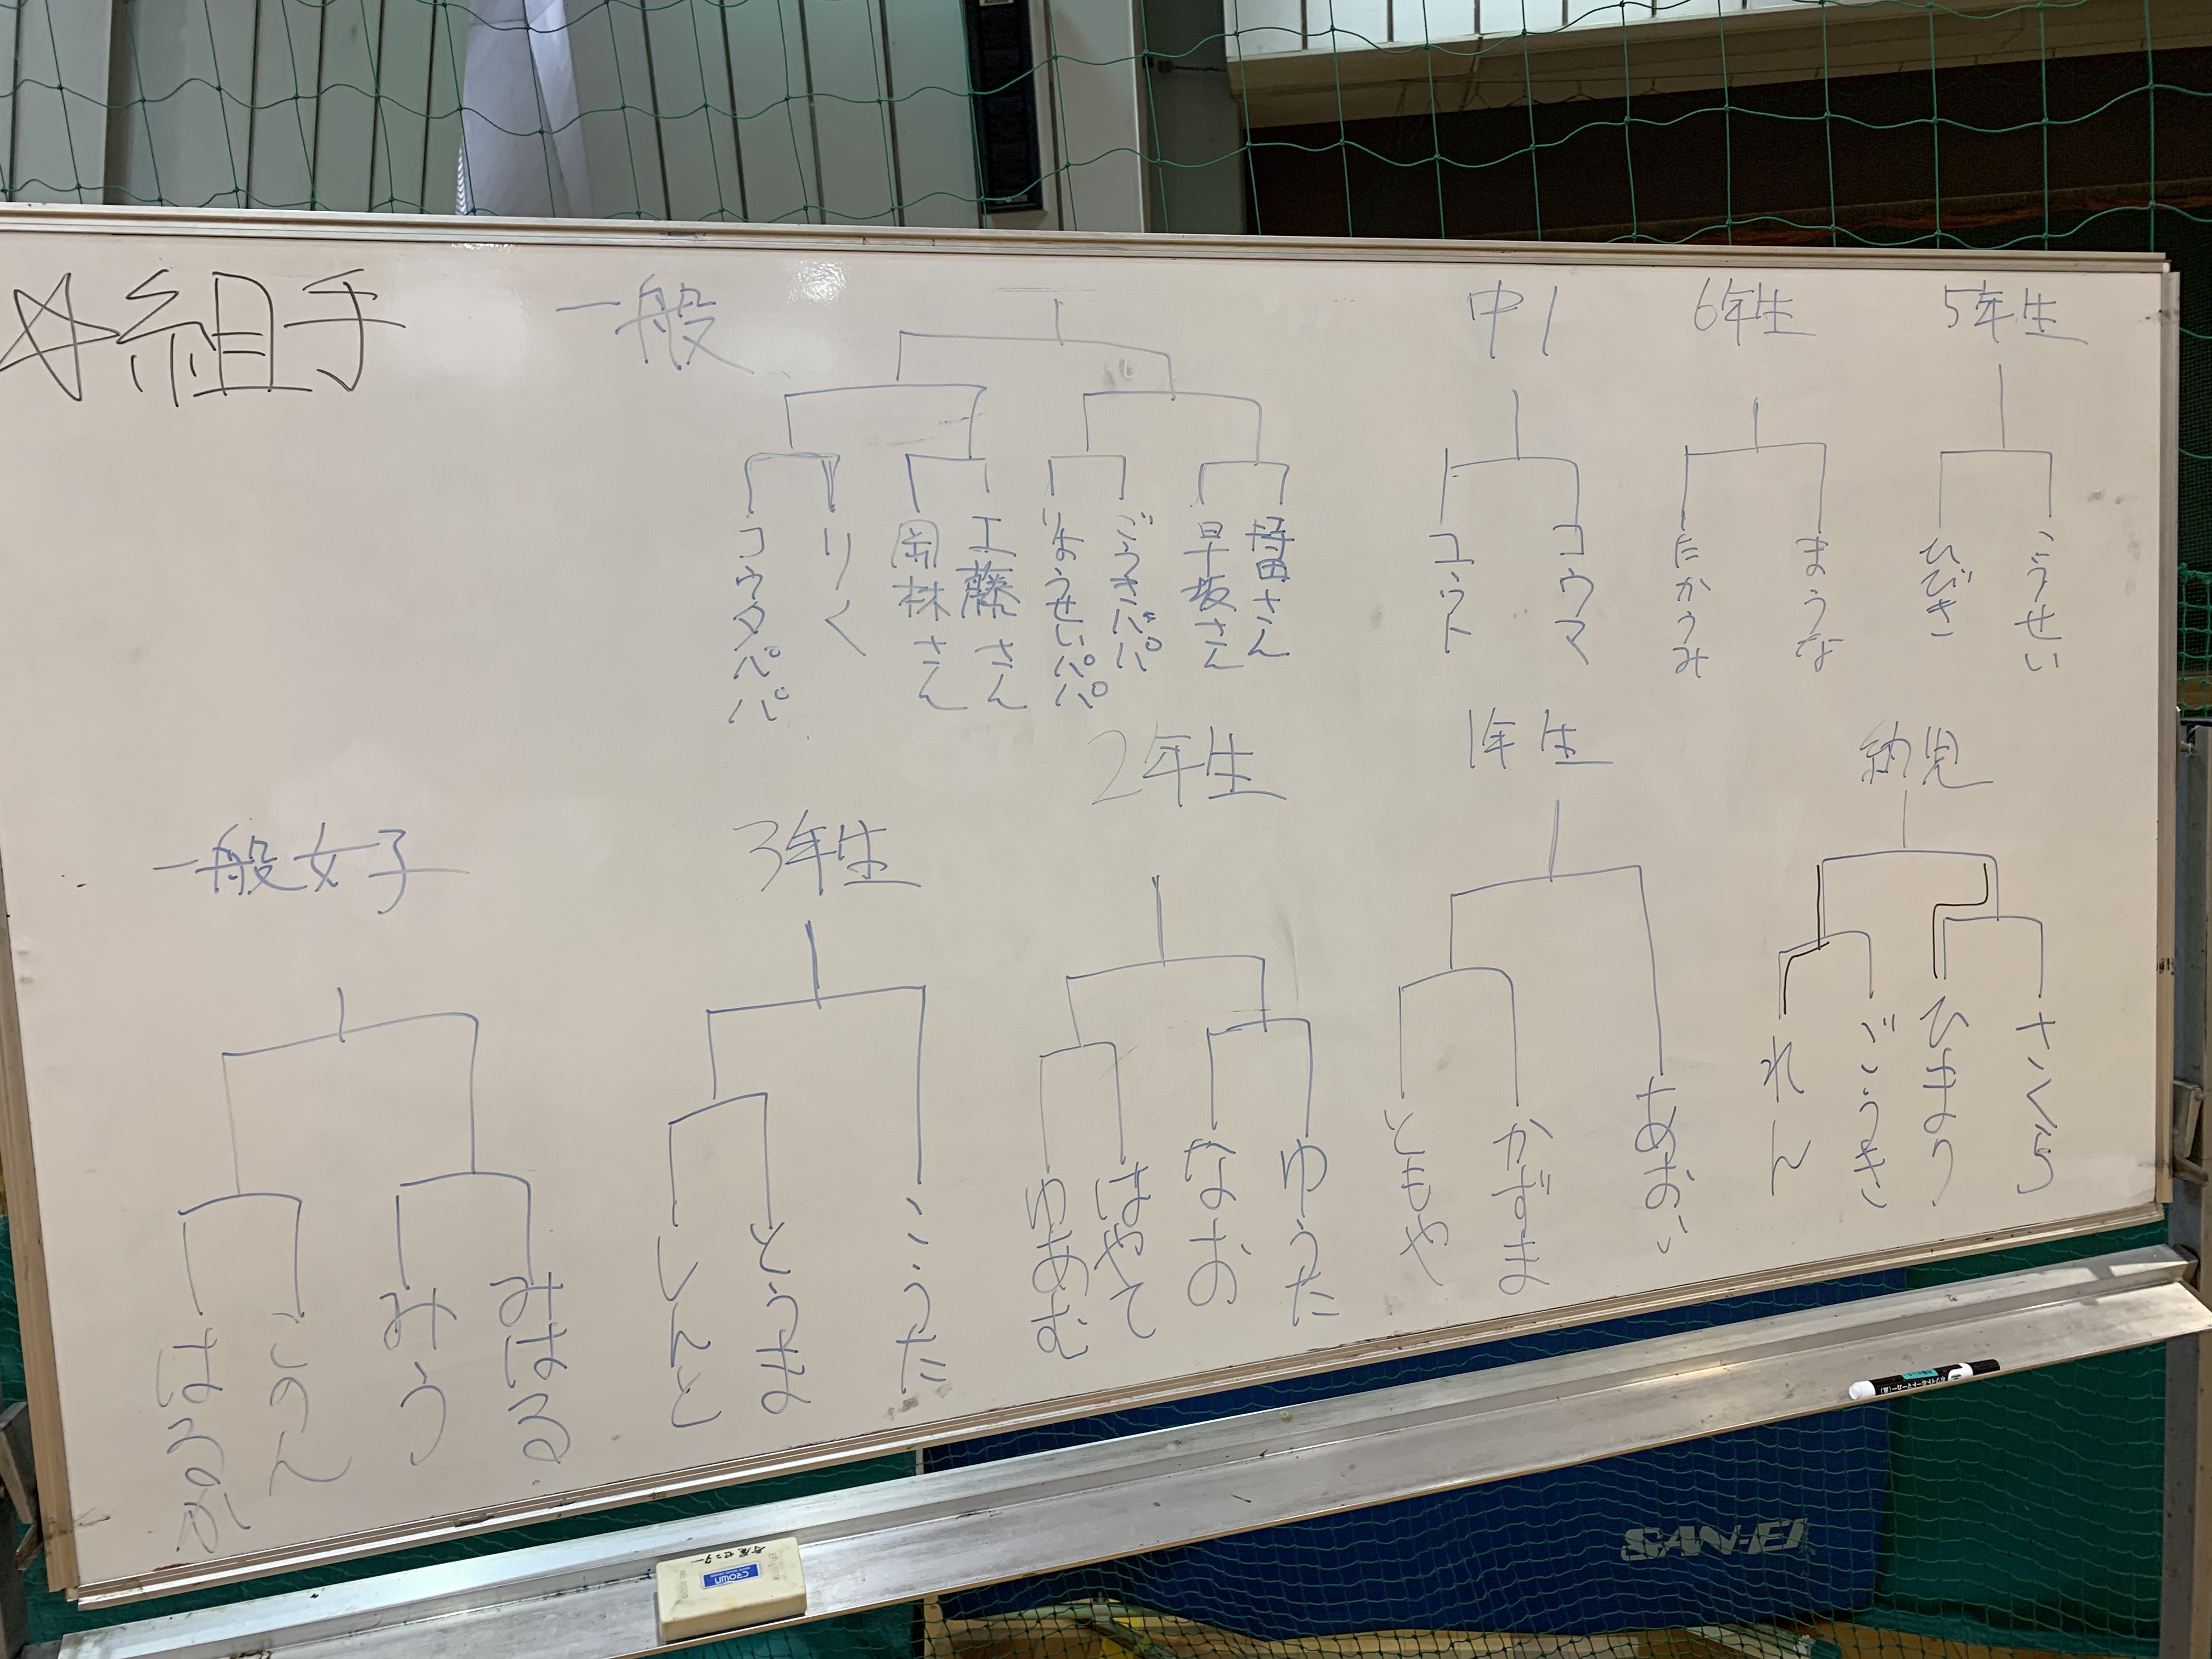 ☆組手
一般
コウタパパ
りく
岡林さん
工藤さん
りょうせいパパ
ごうきパパ
早坂さん
中1
ユウト
コウマ
6年生
たかふみ
まうな
5年生
ひびき
こうせい
一般女子
はるひ
りん
みう
みはる
3年生
しくと
とうま
こうた
2年生
あゆむ
はやて
なお
ゆうた
1年生
ともや
かずま
あおい
幼児
れん
ごうき
ひまり
さくら
CROWN
SAN-EI